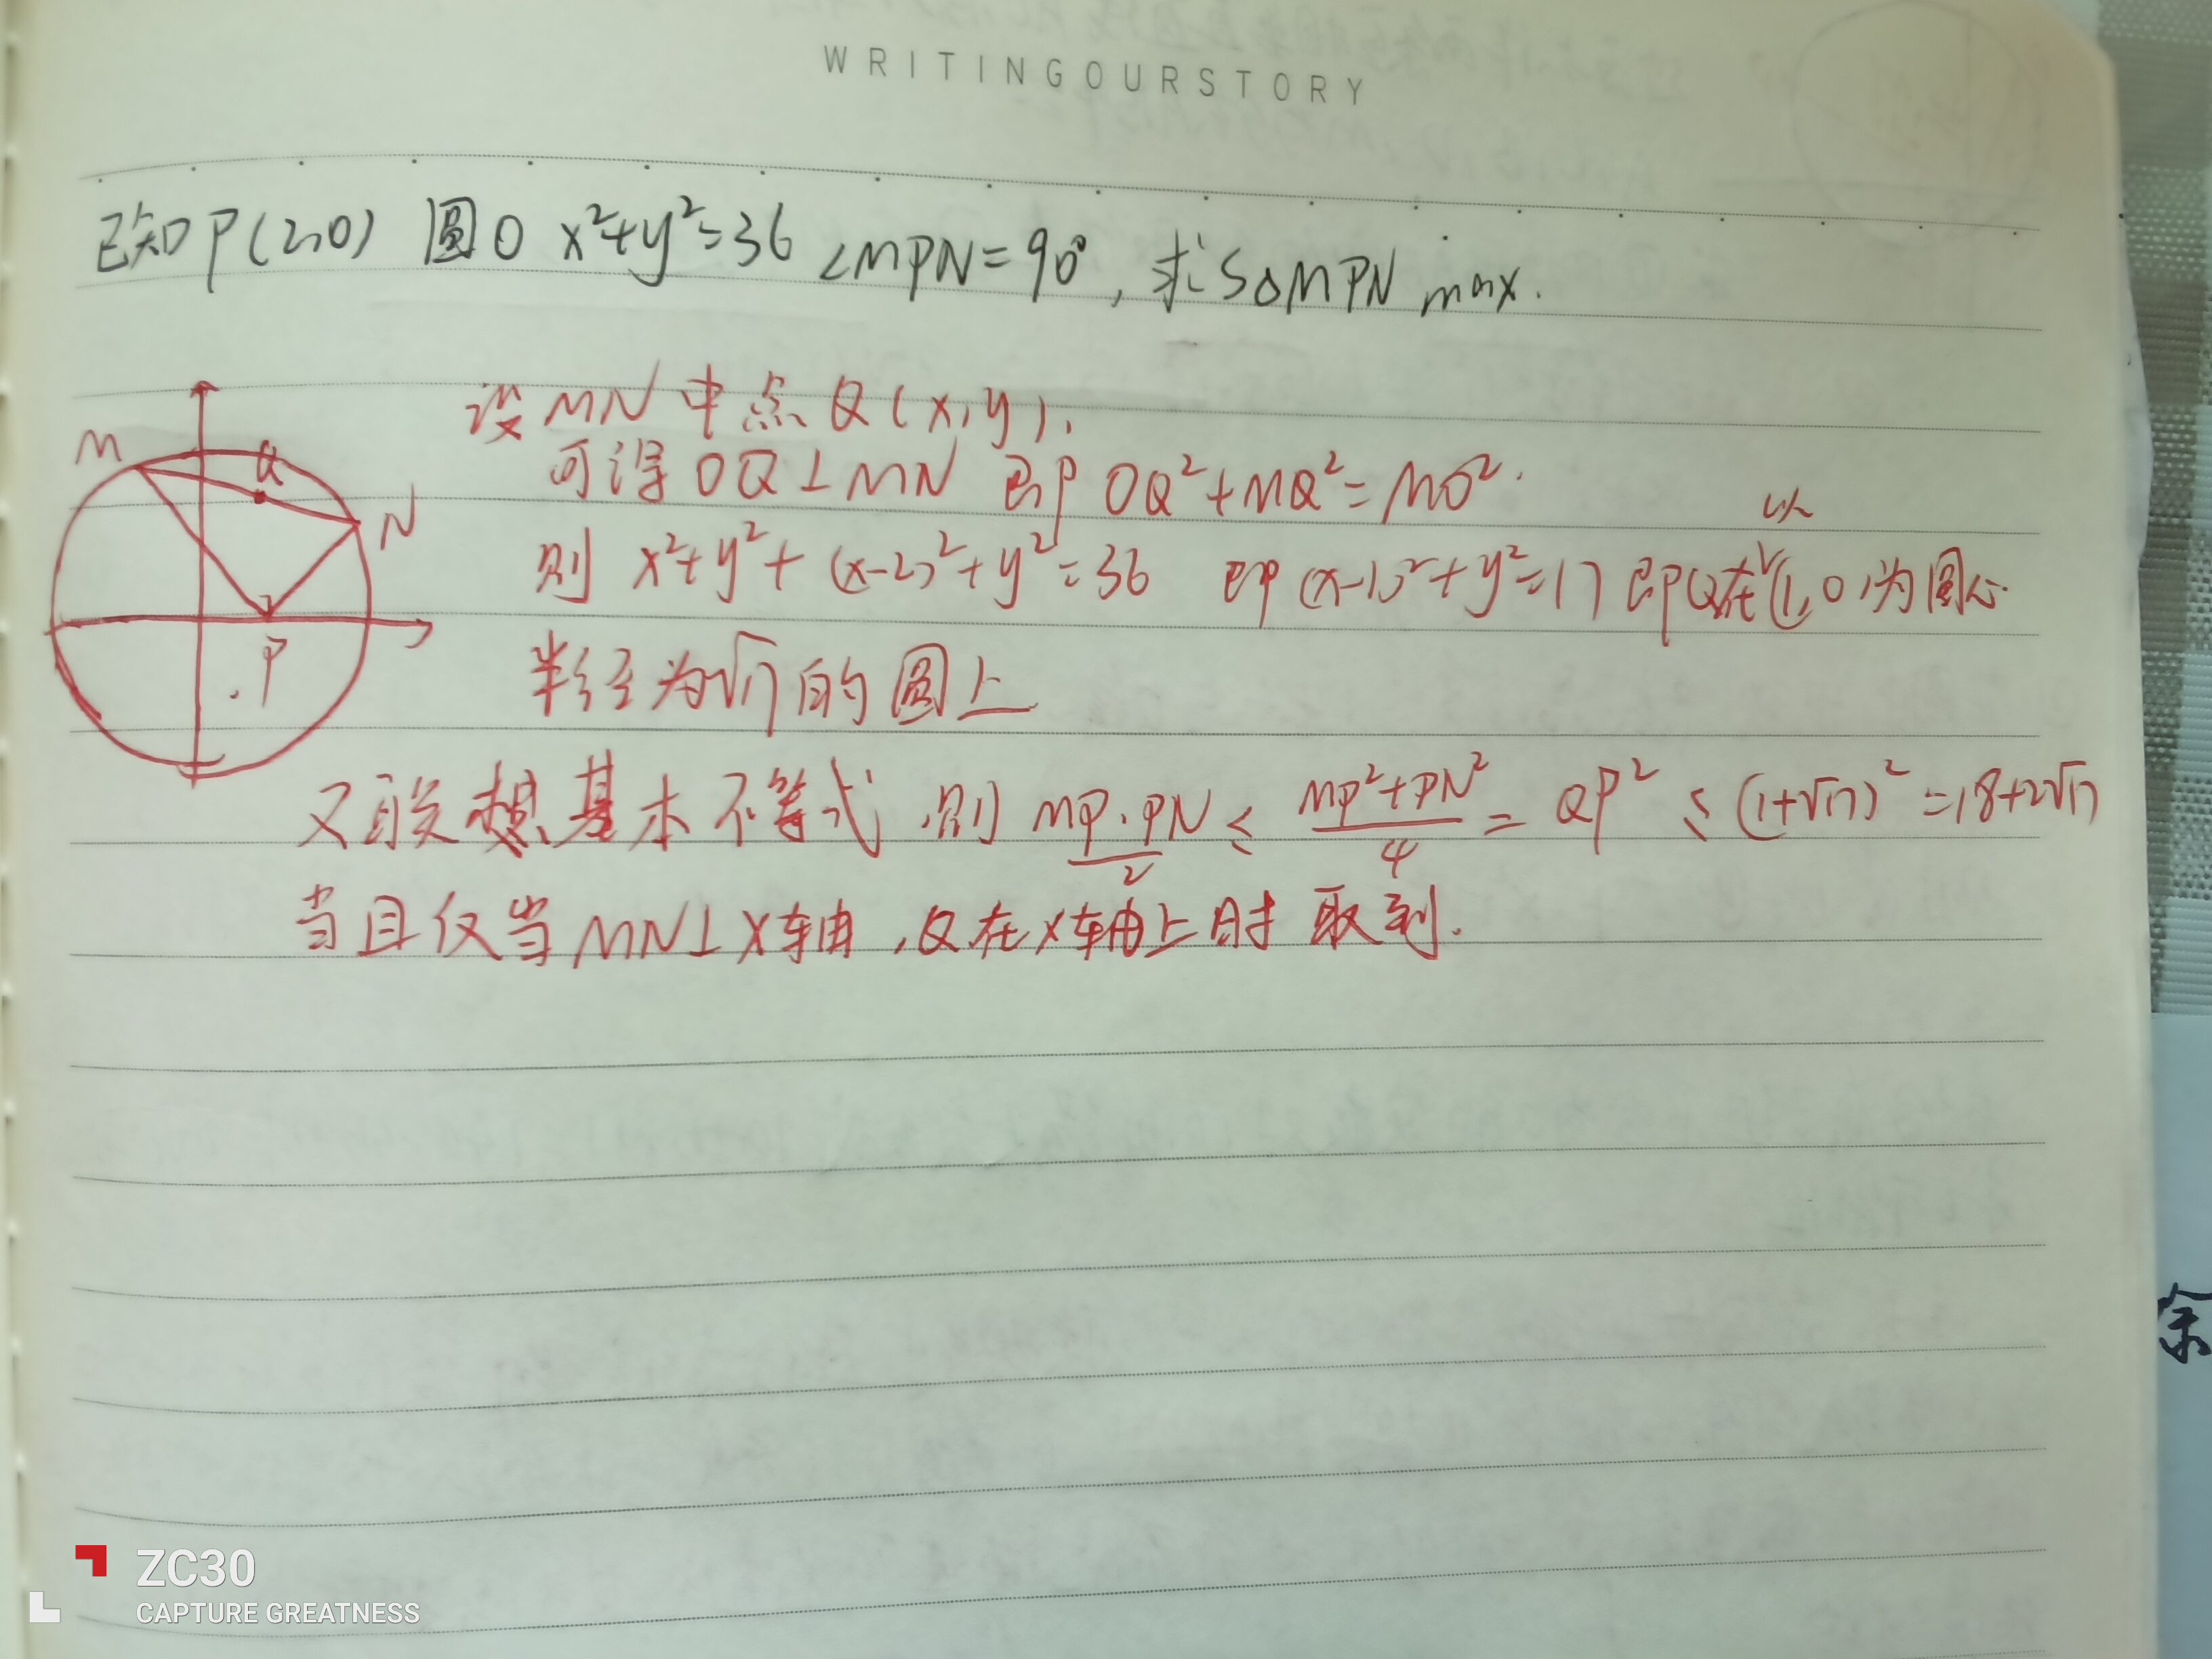 WRITINGOURSTORY
已知P(2,0) 圆O x²+y²=36 ∠MPN=90°, 求S△MPN max.
设MN中点Q(x,y),
可得OQ⊥MN 即 OQ²+MQ²=MO².
则 x²+y²+(x-2)²+y²=36 即(x-1)²+y²=17 即Q在以(1,0)为圆心
半径为√17的圆上
又联想基本不等式,则 MP·PN/2 ≤ (MP²+PN²)/4 = QP² ≤ (1+√17)²=18+2√17
当且仅当MN⊥X轴,Q在X轴上时取到.
M
Q
N
P
.P
余
ZC30
CAPTURE GREATNESS